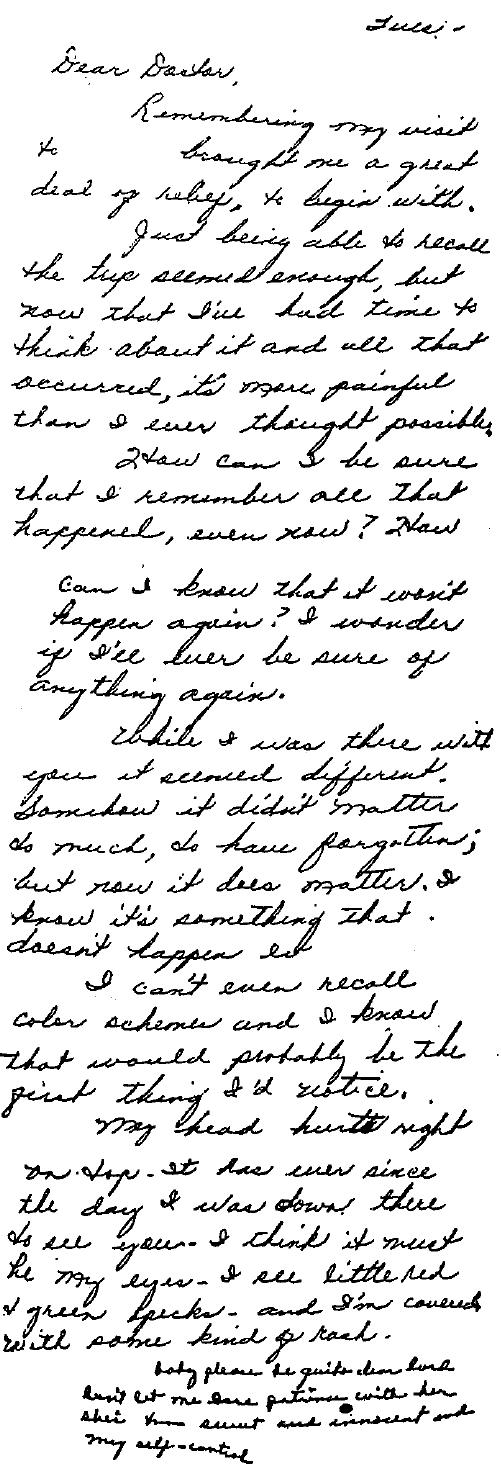 Tues -
Dear Doctor,
Remembering my visit
to brought me a great
deal of relief, to begin with.
Just being able to recall
the trip seemed enough, but
now that I've had time to
think about it and all that
occurred, it's more painful
than I ever thought possible.
How can I be sure
that I remember all that
happened, even now? How
can I know that it won't
happen again? I wonder
if I'll ever be sure of
anything again.
While I was there with
you it seemed different.
Somehow it didn't matter
so much, to have forgotten;
but now it does matter. I
know it's something that
doesn't happen ev
I can't even recall
color schemes and I know
that would probably be the
first thing I'd notice.
My head hurts right
on top - It has ever since
the day I was down there
to see you - I think it must
be my eyes - I see little red
& green specks - and I'm covered
with some kind of rash.
baby please be quite dear lord
don't let me lose patience with her
she's too sweet and innocent and
my self-control